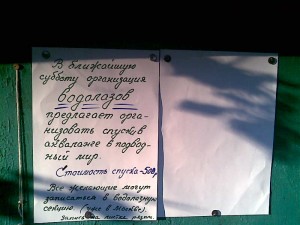 В ближайшую
субботу организация
водолазов
предлагает орга-
низовать спуски в
акваланге в подвод-
ный мир.
Стоимость спуска-500р
Все желающие могут
записаться в водолазную
секцию
Запись на